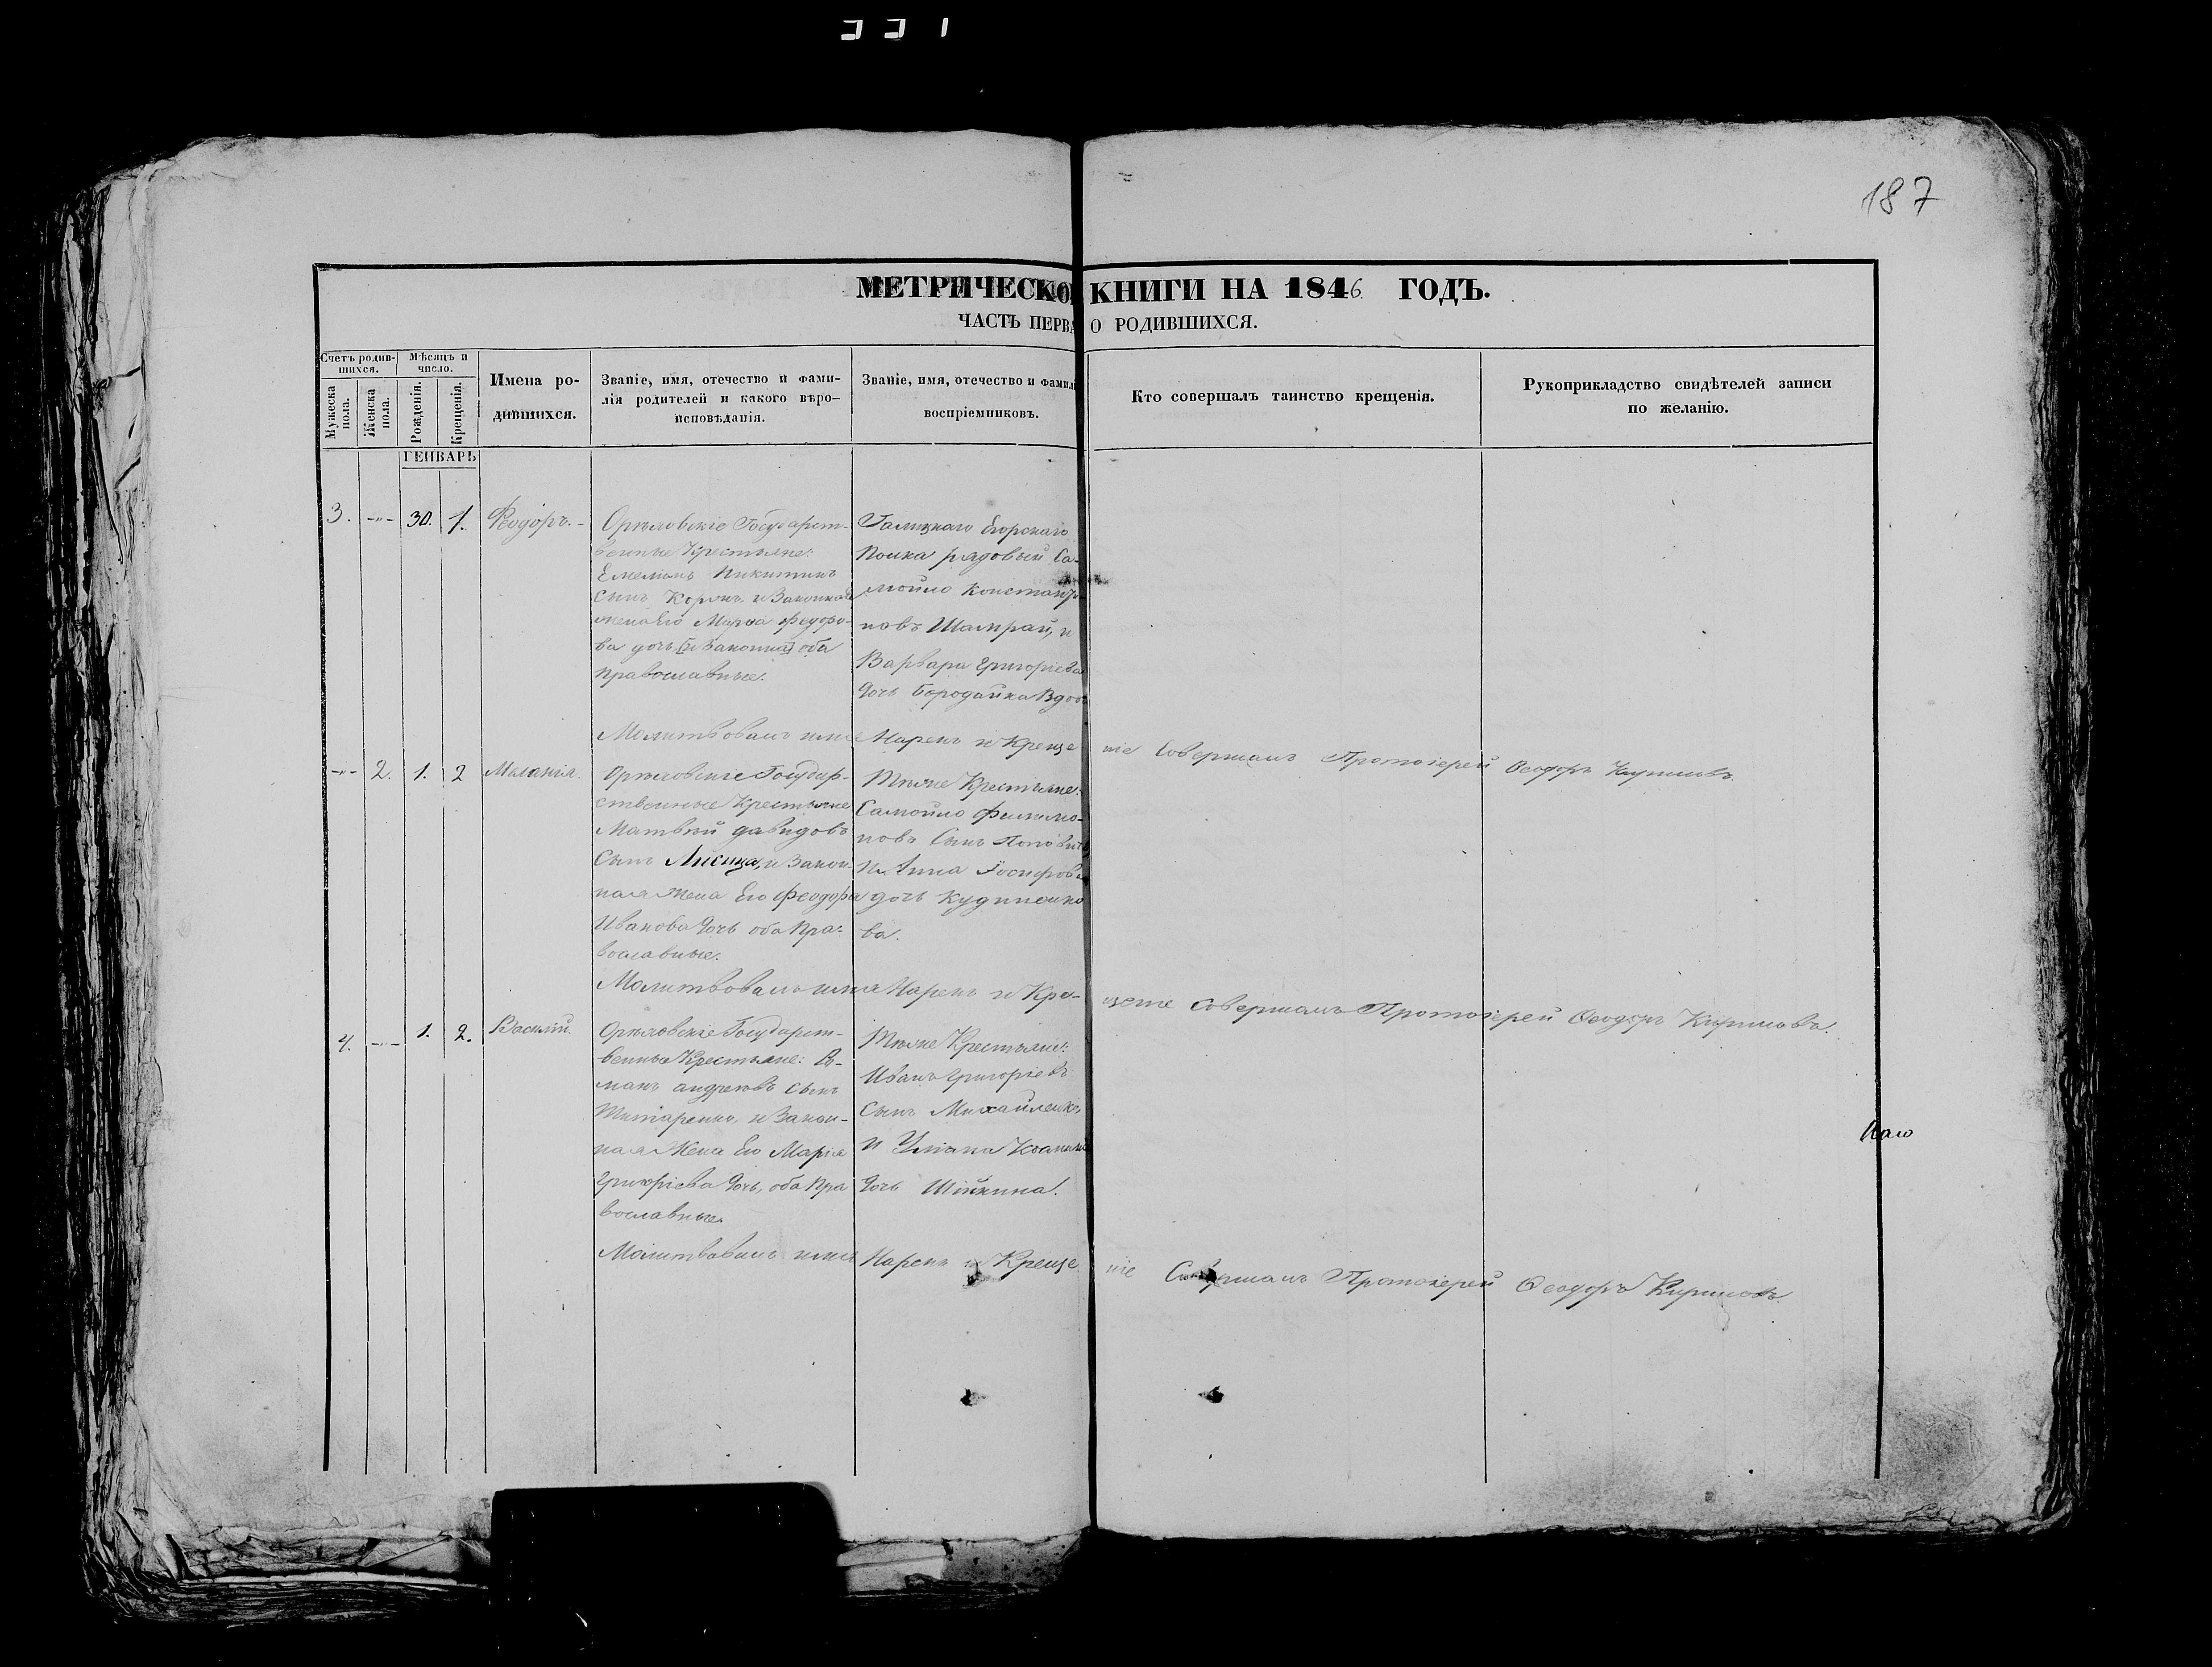 187
МЕТРИЧЕСКО КНИГИ НА 1846 ГОДЪ.
ЧАСТЬ ПЕРВА О РОДИВШИХСЯ.
Счетъ родив-
шихся.
Мужеска
пола.
Женска
пола.
Мѣсяцъ и
число.
Рожденія.
Крещенія.
Имена ро-
дившихся.
Званіе, имя, отечество и фами-
лія родителей и какого вѣро-
исповѣданія.
Званіе, имя, отечество и фамил
воспріемниковъ.
Кто совершалъ таинство крещенія.
Рукоприкладство свидѣтелей записи
по желанію.
ГЕНВАРЬ
3. -"- 30. 1. Феодоръ.-
Орѣловскіе Государст-
венные Крестьяне:
Емеліанъ Никитинъ
Сынъ и Законная
жена Его Марѳа Федоро-
ва дочь [и Законна] оба
православные.
Галицкаго Егорскаго
Полка рядовый Са-
мойло Констант
новъ Шамрай, и
Варвара Григоріева
дочь Бородайка Вдов
Молитвовалъ имя Нарекъ и Креще ніе Совершалъ Протоіерей Ѳеодоръ
-"- 2. 1. 2 Маланія.
Орѣловскіе Государ-
ственные Крестьяне
Матвѣй Давидовъ
Сынъ Лисица, и Закон-
ная жена Его Феодора
Иванова дочь оба Пра-
вославные.
Тѣже Крестьяне:
Самойло Филимо-
новъ Сынъ
И Анна Іосифова
дочь Кудинено
ва.
Молитвовалъ имя Нарекъ и Кре- щеніе Совершалъ Протоіерей Ѳеодоръ Кириловъ.
4. -"- 1. 2. Василій.
Орѣловскіе Государст-
венные Крестьяне: Ро-
манъ Андреевъ Сынъ
Титаренко, и Закон-
ная Жена Его Марія
Григоріева дочь, оба Пра
вославные.
Тѣже Крестьяне:
Иванъ Григоріевъ
Сынъ Михайленко
И Уліана
дочь Шійкина.
Молитвовалъ имя Нарекъ и Креще ніе Совершалъ Протоіерей Ѳеодоръ Кириловъ.